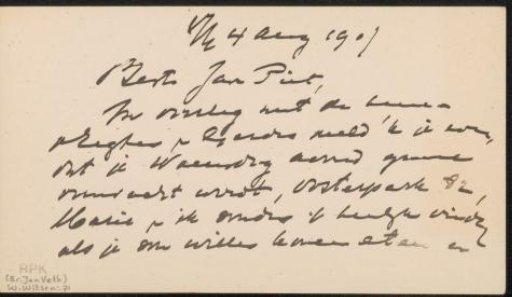 4 Aug 1901
Beste Jan Piet,
In overleg met de heeren
meld ik je even,
dat je Woensdag avond gaarne
verwacht wordt, Oosterpark 82,
Marie & ik zouden 't heerlijk vinden
als je om willen komen eten en
RPK
(Br. Jan Veth)
W. Witsen: 71